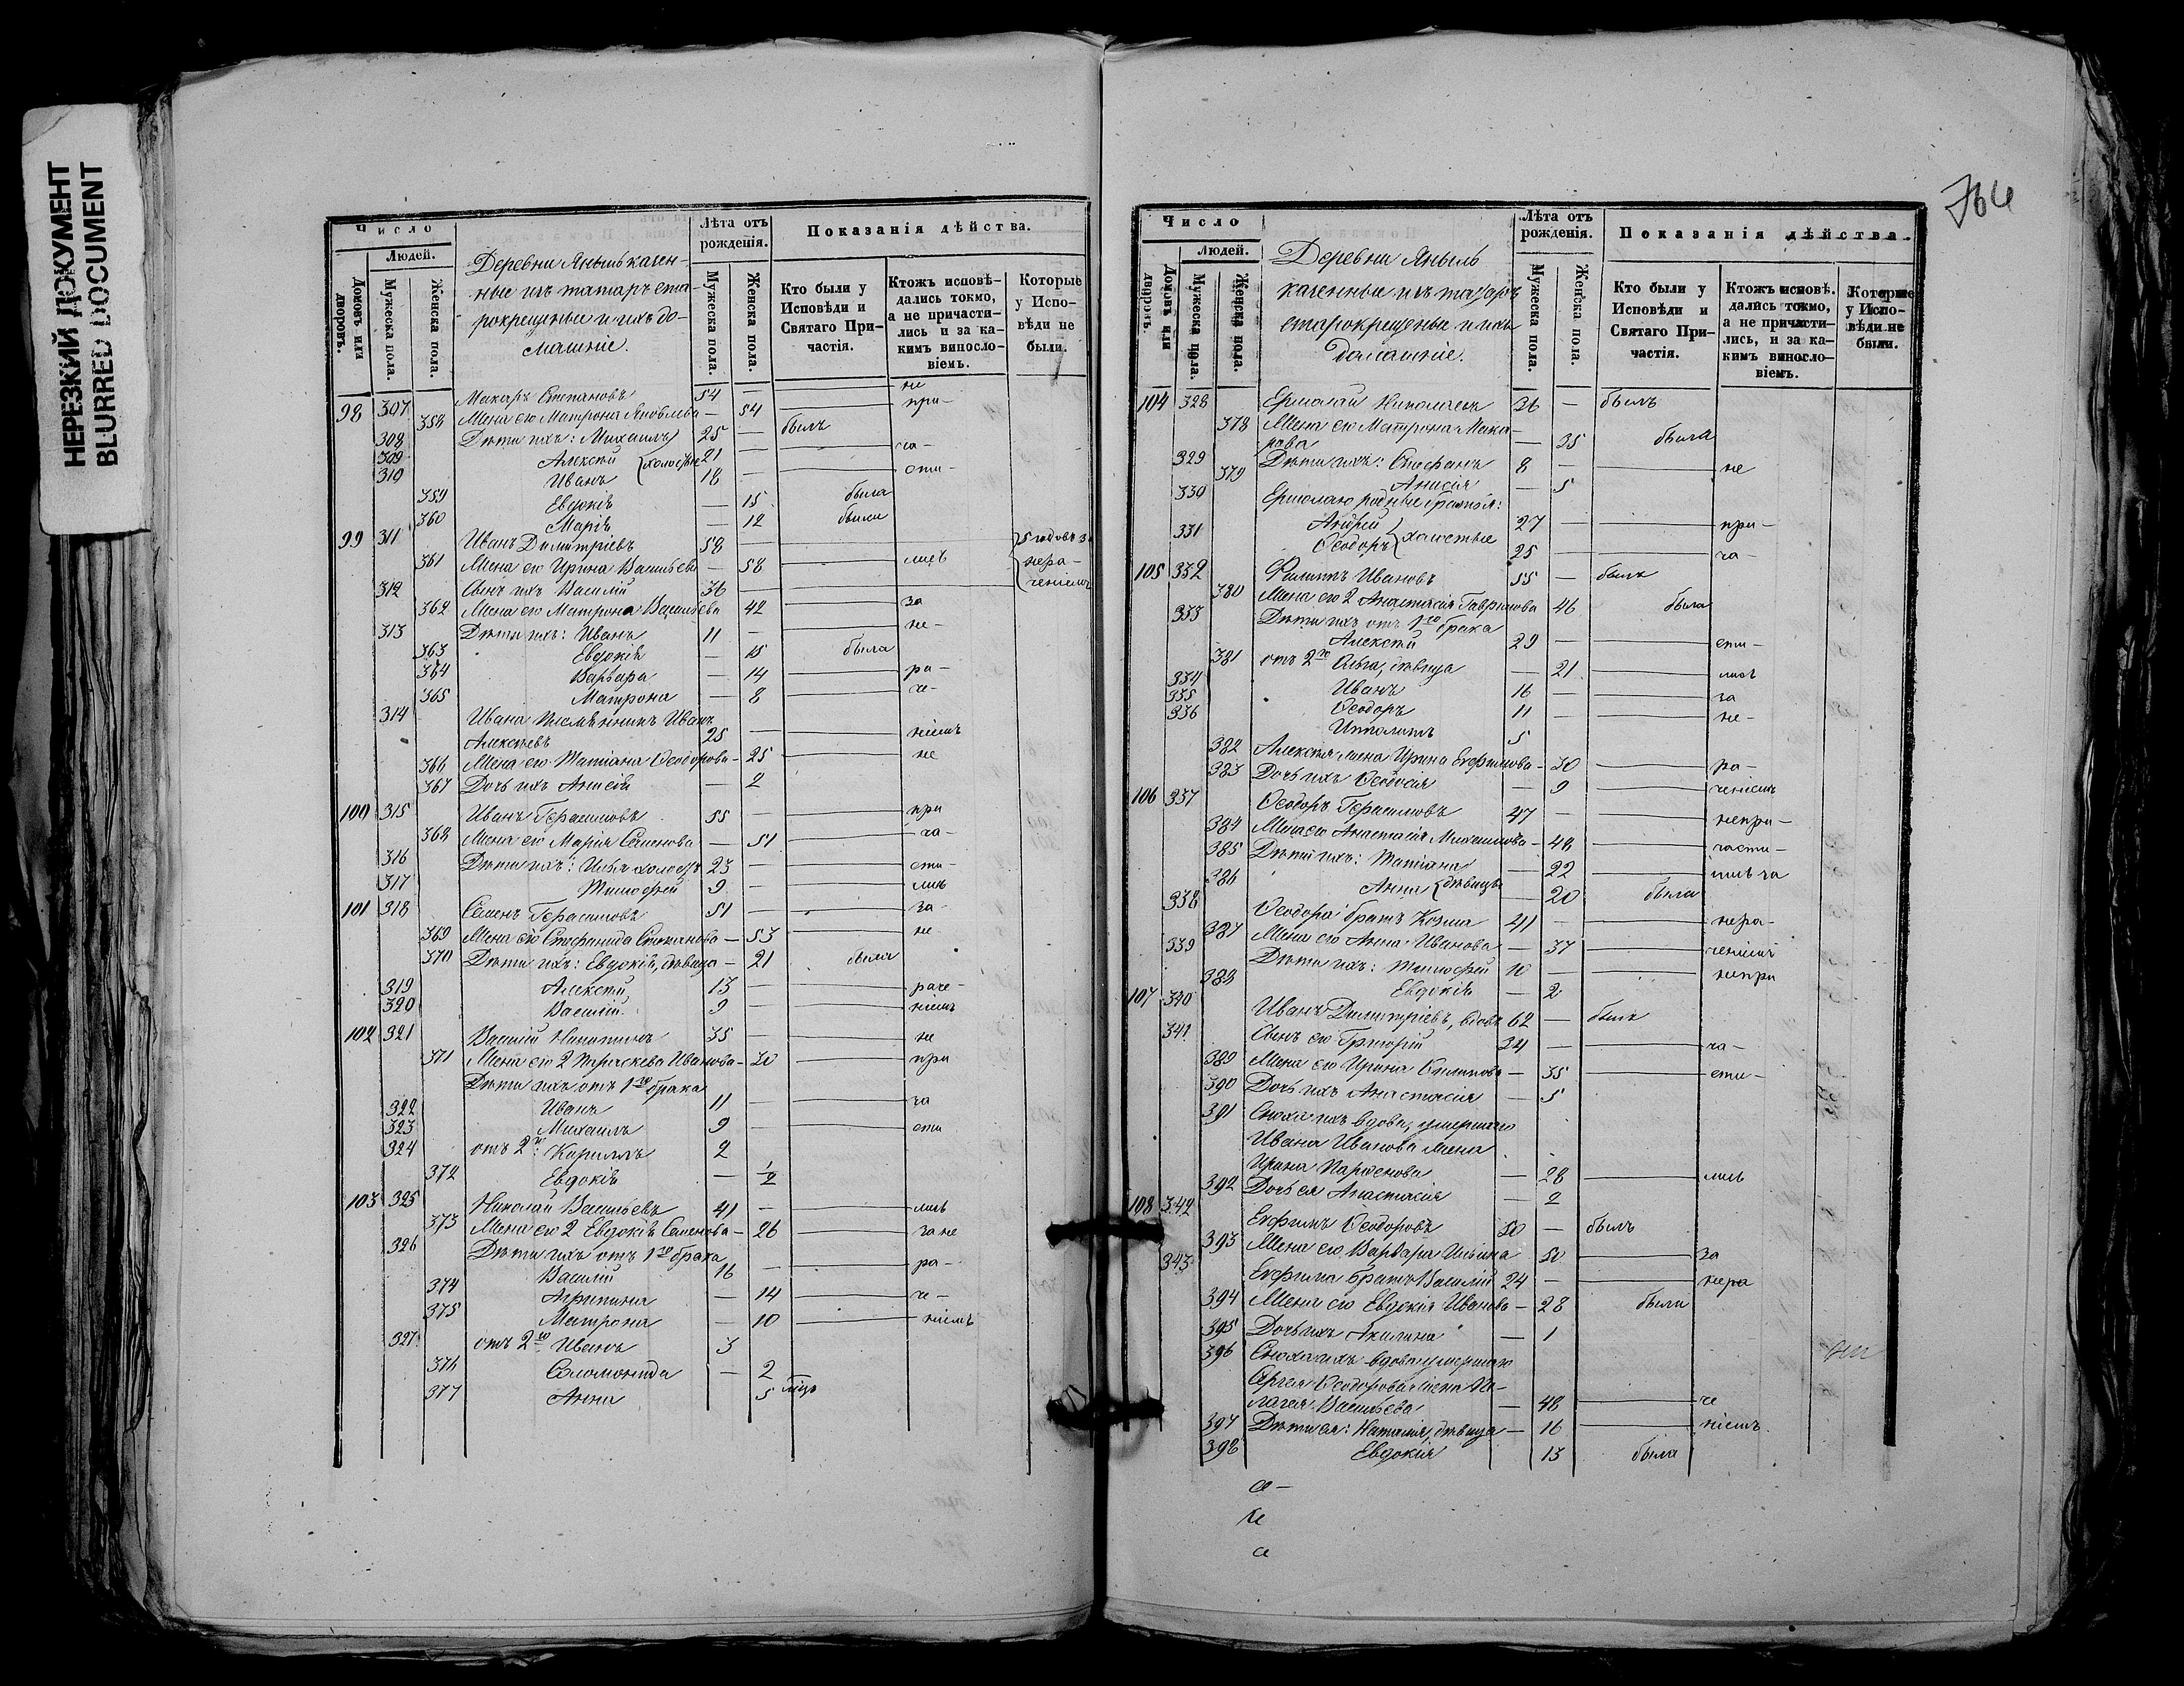 НЕРЕЗКИЙ ДОКУМЕНТ
BLURRED DOCUMENT
Число
Людей.
Домовъ или дворовъ.
Мужеска пола.
Женска пола.
Деревни Яныль казен-
ные изъ татаръ ста-
рокрещеные и ихъ до-
машніе.
Лѣта отъ рожденія.
Мужеска пола.
Женска пола.
Показанія дѣйства.
Кто были у Исповѣди и Святаго При-частія.
Ктожъ исповѣ-дались токмо, а не причасти-лись и за ка-кимъ винословіемъ.
Которые у Испо-вѣди не были.
98 307 Макаръ Степановъ 54 — не
358 Жена его Матрона Яковлева — 54 при-
308 Дѣти ихъ: Михаилъ 25 — былъ
309 Алексѣй холостые 21 — ча-
310 Иванъ 18 — сти-
359 Евдокія — 15 была
360 Марія — 12 была
99 311 Иванъ Димитріевъ 58 —
5 годовъ за
361 Жена его Ирина Васильева — 58 лись
нера-
312 Сынъ ихъ Василій 36 —
ченіемъ
362 Жена его Матрона Васильева 42 за
313 Дѣти ихъ: Иванъ 11 — не-
363 Евдокія — 15 была
364 Варвара — 14 ра-
365 Матрона — 8 че-
314 Ивана племянникъ Иванъ
Алексѣевъ 25 — ніемъ
366 Жена его Татіана Ѳеодорова — 25 не
367 Дочь ихъ Анисія — 2
100 315 Иванъ Герасимовъ 55 — при
368 Жена его Марія Семенова — 51 ча-
316 Дѣти ихъ: Илья холостъ 23 — сти-
317 Тимофей 9 — лись
101 318 Семенъ Герасимовъ 51 — за-
369 Жена его Стефанида Степанова — 53 не
370 Дѣти ихъ: Евдокія, дѣвица — 21 была
319 Алексѣй 13 — раче-
320 Василій 9 — ніемъ
102 321 Василій Никитинъ 35 — не
371 Жена его 2 Параскева Иванова — 30 при
Дѣти ихъ отъ 1го брака
322 Иванъ 11 — ча
323 Михаилъ 9 — сти
324 отъ 2го: Кириллъ 2
372 Евдокія — 1/2
103 325 Николай Васильевъ 41 — лись
373 Жена его 2 Евдокія Семенова — 26 за не
326 Дѣти ихъ отъ 1го брака
Василій 16 — ра-
374 Агрипина — 14 че-
375 Матрона — 10 ніемъ
327 отъ 2го Иванъ 3
376 Соломонида — 2
377 Анна 5 мцъ
Число
Людей.
Домовъ или дворовъ.
Мужеска пола.
Женска пола.
Деревни Яныль
казенные изъ татаръ
старокрещеные и ихъ
домашніе.
Лѣта отъ рожденія.
Мужеска пола.
Женска пола.
Показанія дѣйства.
Кто были у Исповѣди и Святаго При-частія.
Ктожъ исповѣ-дались токмо, а не причасти-лись, и за ка-кимъ винословіемъ.
Которые у Испо-вѣди не были.
104 328 Ермолай Николаевъ 36 — былъ
378 Жена его Матрона Мака-
рова — 35 была
329 Дѣти ихъ: Стефанъ 8 — не
379 Анисія — 5
Ермолаю родные братья:
330 Андрей 27 — при-
331 Ѳеодоръ холостые 25 — ча-
105 332 Филиппъ Ивановъ 55 — былъ
380 Жена его 2 Анастасія Гаврилова 46 была
333 Дѣти ихъ отъ 1го брака
Алексѣй 29 — сти-
381 отъ 2го Ольга, дѣвица — 21 лись
334 Иванъ 16 — за
335 Ѳеодоръ 11 — не-
336 Ипполитъ 5
382 Алексѣя жена Ирина Ефимова — 30 ра-
383 Дочь ихъ Ѳеодосія — 9 ченіемъ
106 337 Ѳеодоръ Герасимовъ 47 — непри-
384 Жена его Анастасія Михаилова — 48 части-
385 Дѣти ихъ: Татіана — 22 лись за
386 Анна дѣвицы — 20 была
338 Ѳеодора братъ Козма 41 — нера-
387 Жена его Анна Иванова — 37 ченіемъ
339 Дѣти ихъ: Тимофей 10 — непри
388 Евдокія — 2
107 340 Иванъ Димитріевъ, вдовъ 62 — былъ
341 Сынъ его Григорій 34 — ча-
389 Жена его Ирина Филипова — 35 сти-
390 Дочь ихъ Анастасія — 5
391 Сноха ихъ вдова, умершаго
Ивана Иванова жена
Ирина Парѳенова — 28 лись
392 Дочь ея Анастасія — 2
108 342 Ефимъ Ѳеодоровъ 50 — былъ
393 Жена его Варвара Ильина 50 за
343 Ефима братъ Василій 24 — нера
394 Жена его Евдокія Иванова — 28 была
395 Дочь ихъ Акилина — 1
396 Сноха ихъ вдова умершаго
Сергея Ѳеодорова жена Пе-
лагея Васильева — 48 че
397 Дѣти ея: Наталія, дѣвица — 16 ніемъ.
398 Евдокія 13 была